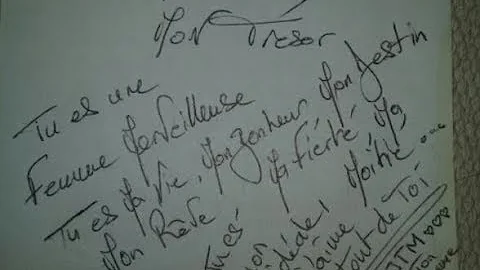 Mon Trésor
Tu es une
Femme Merveilleuse
Tu es Ma Vie, Mon Bonheur Mon Destin
Mon Rêve Ma Fierté, Ma
Moitié...
Tu es
idéale,
J'aime
tout de Toi
JTM